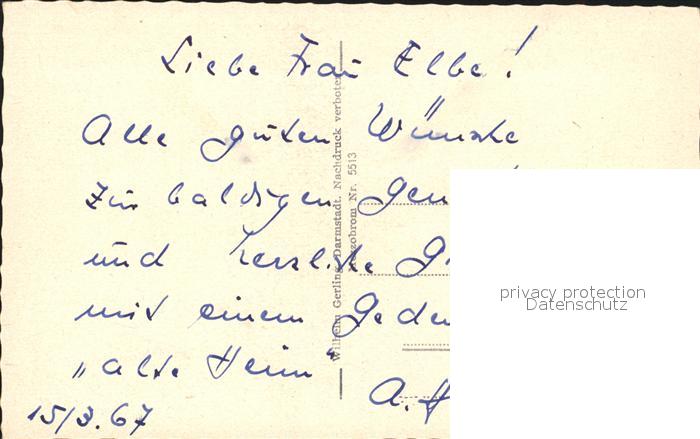 Liebe Frau Elbe!
Alle guten Wünsche
zur baldigen
und herzliche
mit einem
„alte Heim"
A. H
15/3.67
Wilhelm Gerling, Darmstadt. Nachdruck verboten
Nr. 5513
privacy protection
Datenschutz